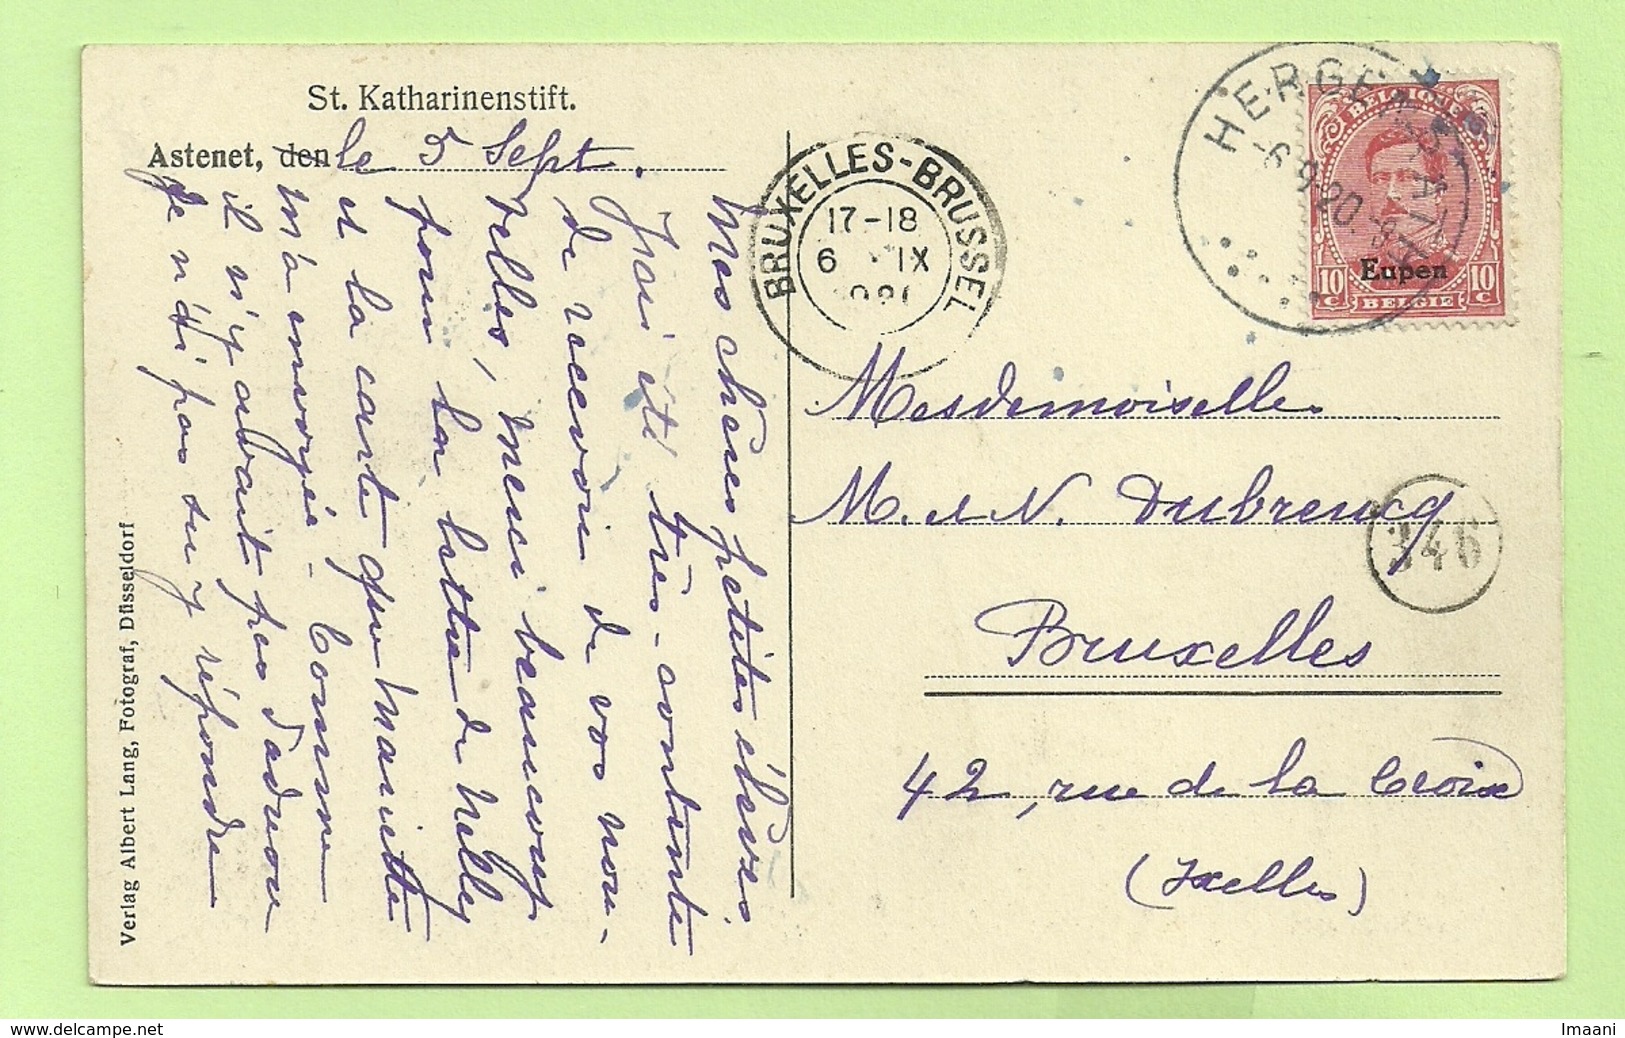 St. Katharinenstift.
Astenet, den le 5 Sept.
Mes chères petites élèves,
J'ai été très-contente
de recevoir de vos nou-
velles, merci beaucoup
pour la lettre de Nelly
et la carte que Mariette
m'a envoyée. Comme
il n'y avait pas d'adresse
je n'ai pas su y répondre
Verlag Albert Lang, Fotograf, Düsseldorf
BRUXELLES-BRUSSEL
17-18
6 IX
HERGENRATH
-6.9.20.
BELGIQUE
Eupen
10 c BELGIE 10 c
Mesdemoiselles
M. et N. Dubreucq
346
Bruxelles
42, rue de la Croix
(Ixelles)
delcampe.net
Imaani